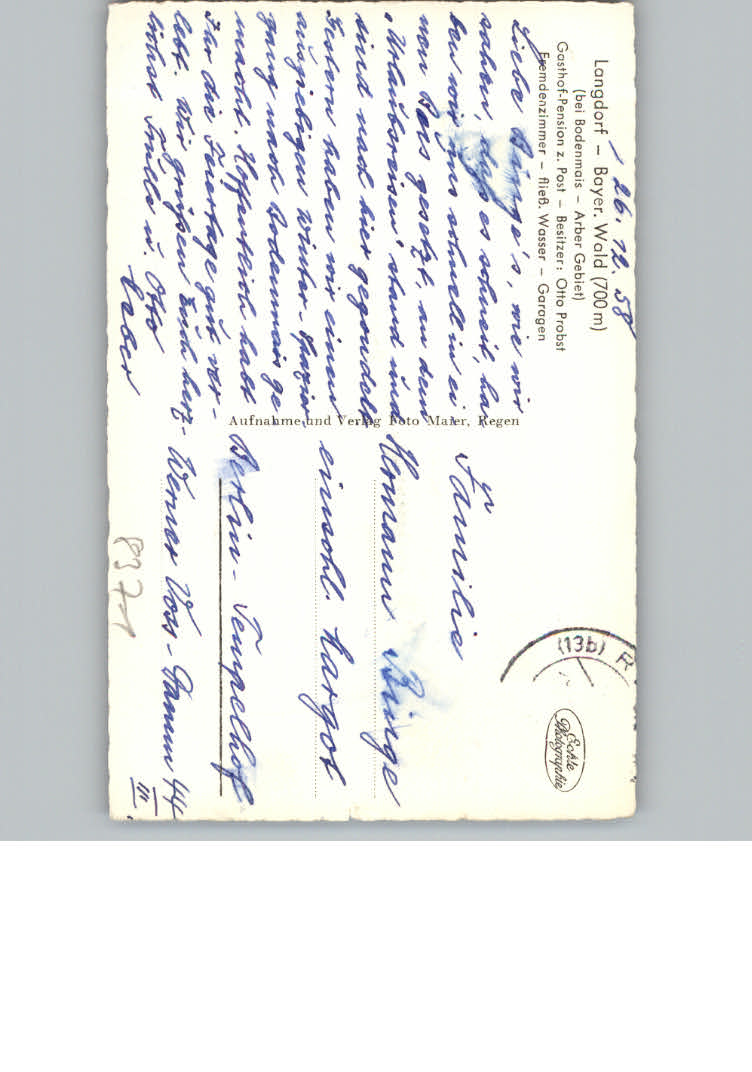 Langdorf – Bayer. Wald (700 m)
(bei Bodenmais – Arber Gebiet)
Gasthof-Pension z. Post – Besitzer: Otto Probst
Fremdenzimmer – fließ. Wasser – Garagen
26.12.58
Liebe Beinge's, wie wir
sahen, daß es schneit, ha
ben wir uns schnell in ei
nen gesetzt, an dem
"Urlaubsreisen" stand und
sind nach hier gegondelt.
Gestern haben wir einen
ausgiebigen Winter-Spazier
gang nach Bodenmais ge
macht. Hoffentlich habt
Ihr die Feiertage gut ver-
lebt. Wir grüßen Euch herz-
lichst u. Otto
Aufnahme und Verlag Foto Maier, Regen
Familie
Hermann Beinge
einschl. Margot
Berlin-Tempelhof
Werner Voss-Damm 44
III
(13b) R
Echte
Photographie
8371